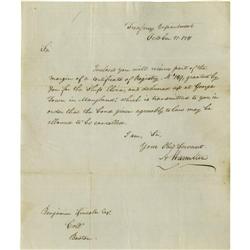 Treasury Department
October 11. 179
Sir
Inclosed you will receive part of the
margin of a Certificate of Registry No granted by
You for the Ship and delivered up at George
Town in Maryland; which is transmitted to you in
order that the Bond given agreeably to law may be
allowed to be cancelled.
I am, Sir,
Your Obed Servant
A Hamilton
Benjamin Lincoln Esqr
Collr
Boston